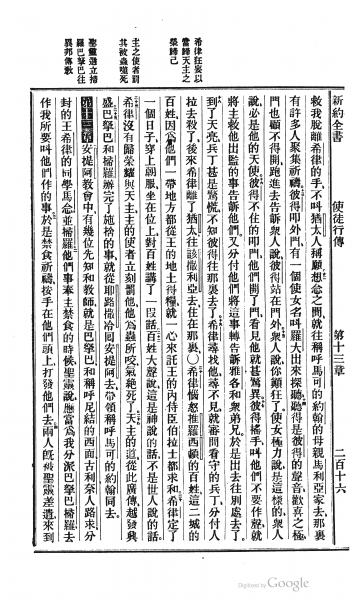 希律狂妄以
當歸天主之
榮歸己
主之使者罰
其被蟲嚙死
聖靈選立掃
羅巴拏巴往
異邦傳敎
新約全書 使徒行傳 第十三章 二百十六
救我脫離希律的手、不叫猶太人搏願、想念之間、就往稱呼馬可的約翰的母親馬利亞家去、那裏
有許多人聚集祈禱、彼得叩外門、有一個使女名叫羅大出來探聽、聽得是彼得的聲音、歡喜之極、
門也顧不得開、跑進去告訴衆人說、彼得站在門外、衆人說、你顚狂了、使女極力說是這樣的、衆人
說、必是他的天使、彼得不住的叩門、他們開了門看見他、就甚驚異、彼得搖手、叫他們不要作聲、就
將主救他出監的事告訴他們、又分付他們將這事轉告訴雅各和衆弟兄、於是出去往別處去了、
到了天亮、兵丁甚是驚慌、不知彼得往那裏去了、希律尋找他、尋不見、就審問看守的兵丁、分付人
拉去殺了、後來希律離了猶太、往該撒利亞去、住在那裏、○希律惱怒推羅西頓的百姓、這二城的
百姓、因爲他們一帶地方都從王的地土得糧、就一心來託王的內侍臣伯拉士都求和、希律定了
一個日子、穿上朝服、坐在位上、對百姓講了一段話、百姓大聲說、這是神說的話、不是世人說的話、
希律沒有歸榮耀與天主、主的使者立刻罰他、他爲蟲所咬、氣絕死了、天主的道、從此廣傳、越發興
盛、巴拏巴和掃羅辦完了施捨的事、就從耶路撒冷回安提阿去、帶領稱呼馬可的約翰同去、
第十三章 安提阿敎會中有幾位先知和敎師、就是巴拏巴、和稱呼尼結的西面、古利奈人路求、分
封的王希律的同學馬念、並掃羅、他們事奉主禁食的時候、聖靈說、應當爲我分派巴拏巴掃羅、去
作我所要叫他們作的事、於是禁食祈禱、按手在他們頭上、打發他們去、兩人旣爲聖靈差遣、來到
Digitized by Google